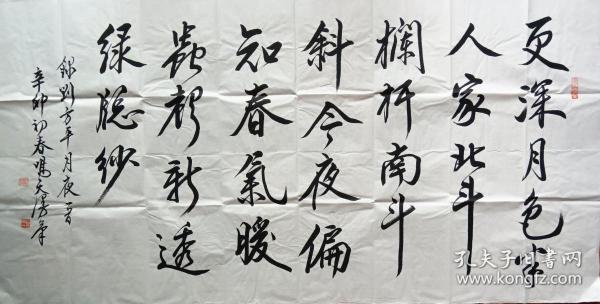 更深月色半
人家北斗
欄杆南斗
斜今夜偏
知春氣暖
蟲聲新透
綠牕紗
錄劉方平月夜一首
辛卯初春
孔夫子旧书网
www.kongfz.com